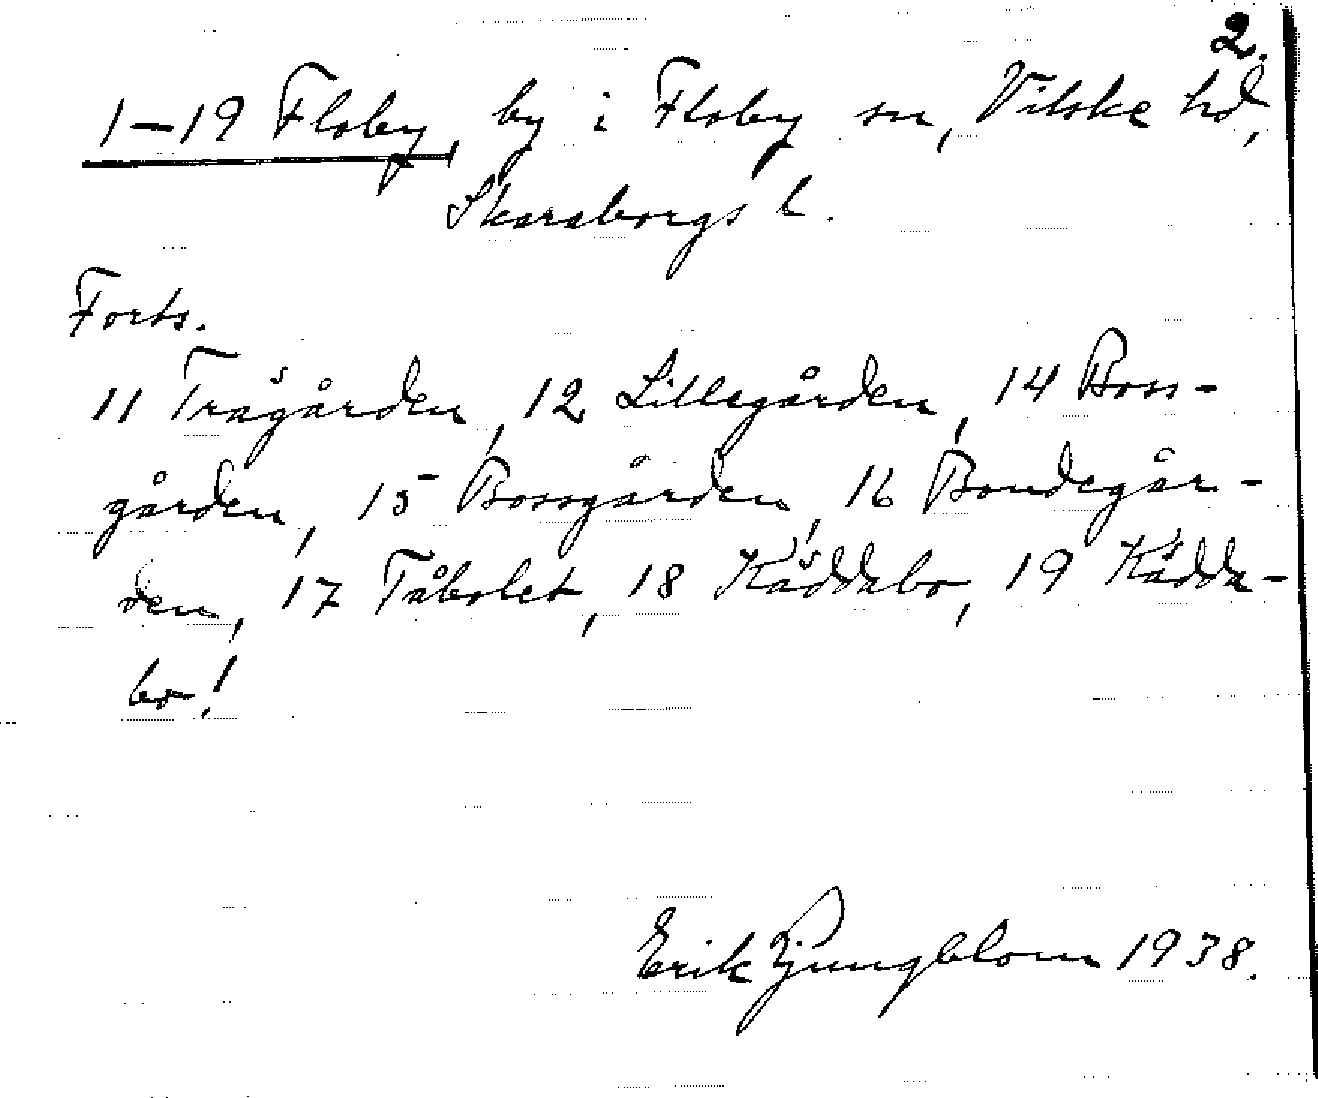 2.
1-19 Floby, by i Floby sn, Vilske hd,
Skaraborgs l.
Forts.
11 Trägården, 12 Lillegården, 14 Boss-
gården, 15 Bossgården, 16 Bondegår-
den, 17 Tåbolet, 18 Käddabo, 19 Kädda-
bo!
Erik Ljungblom 1938.